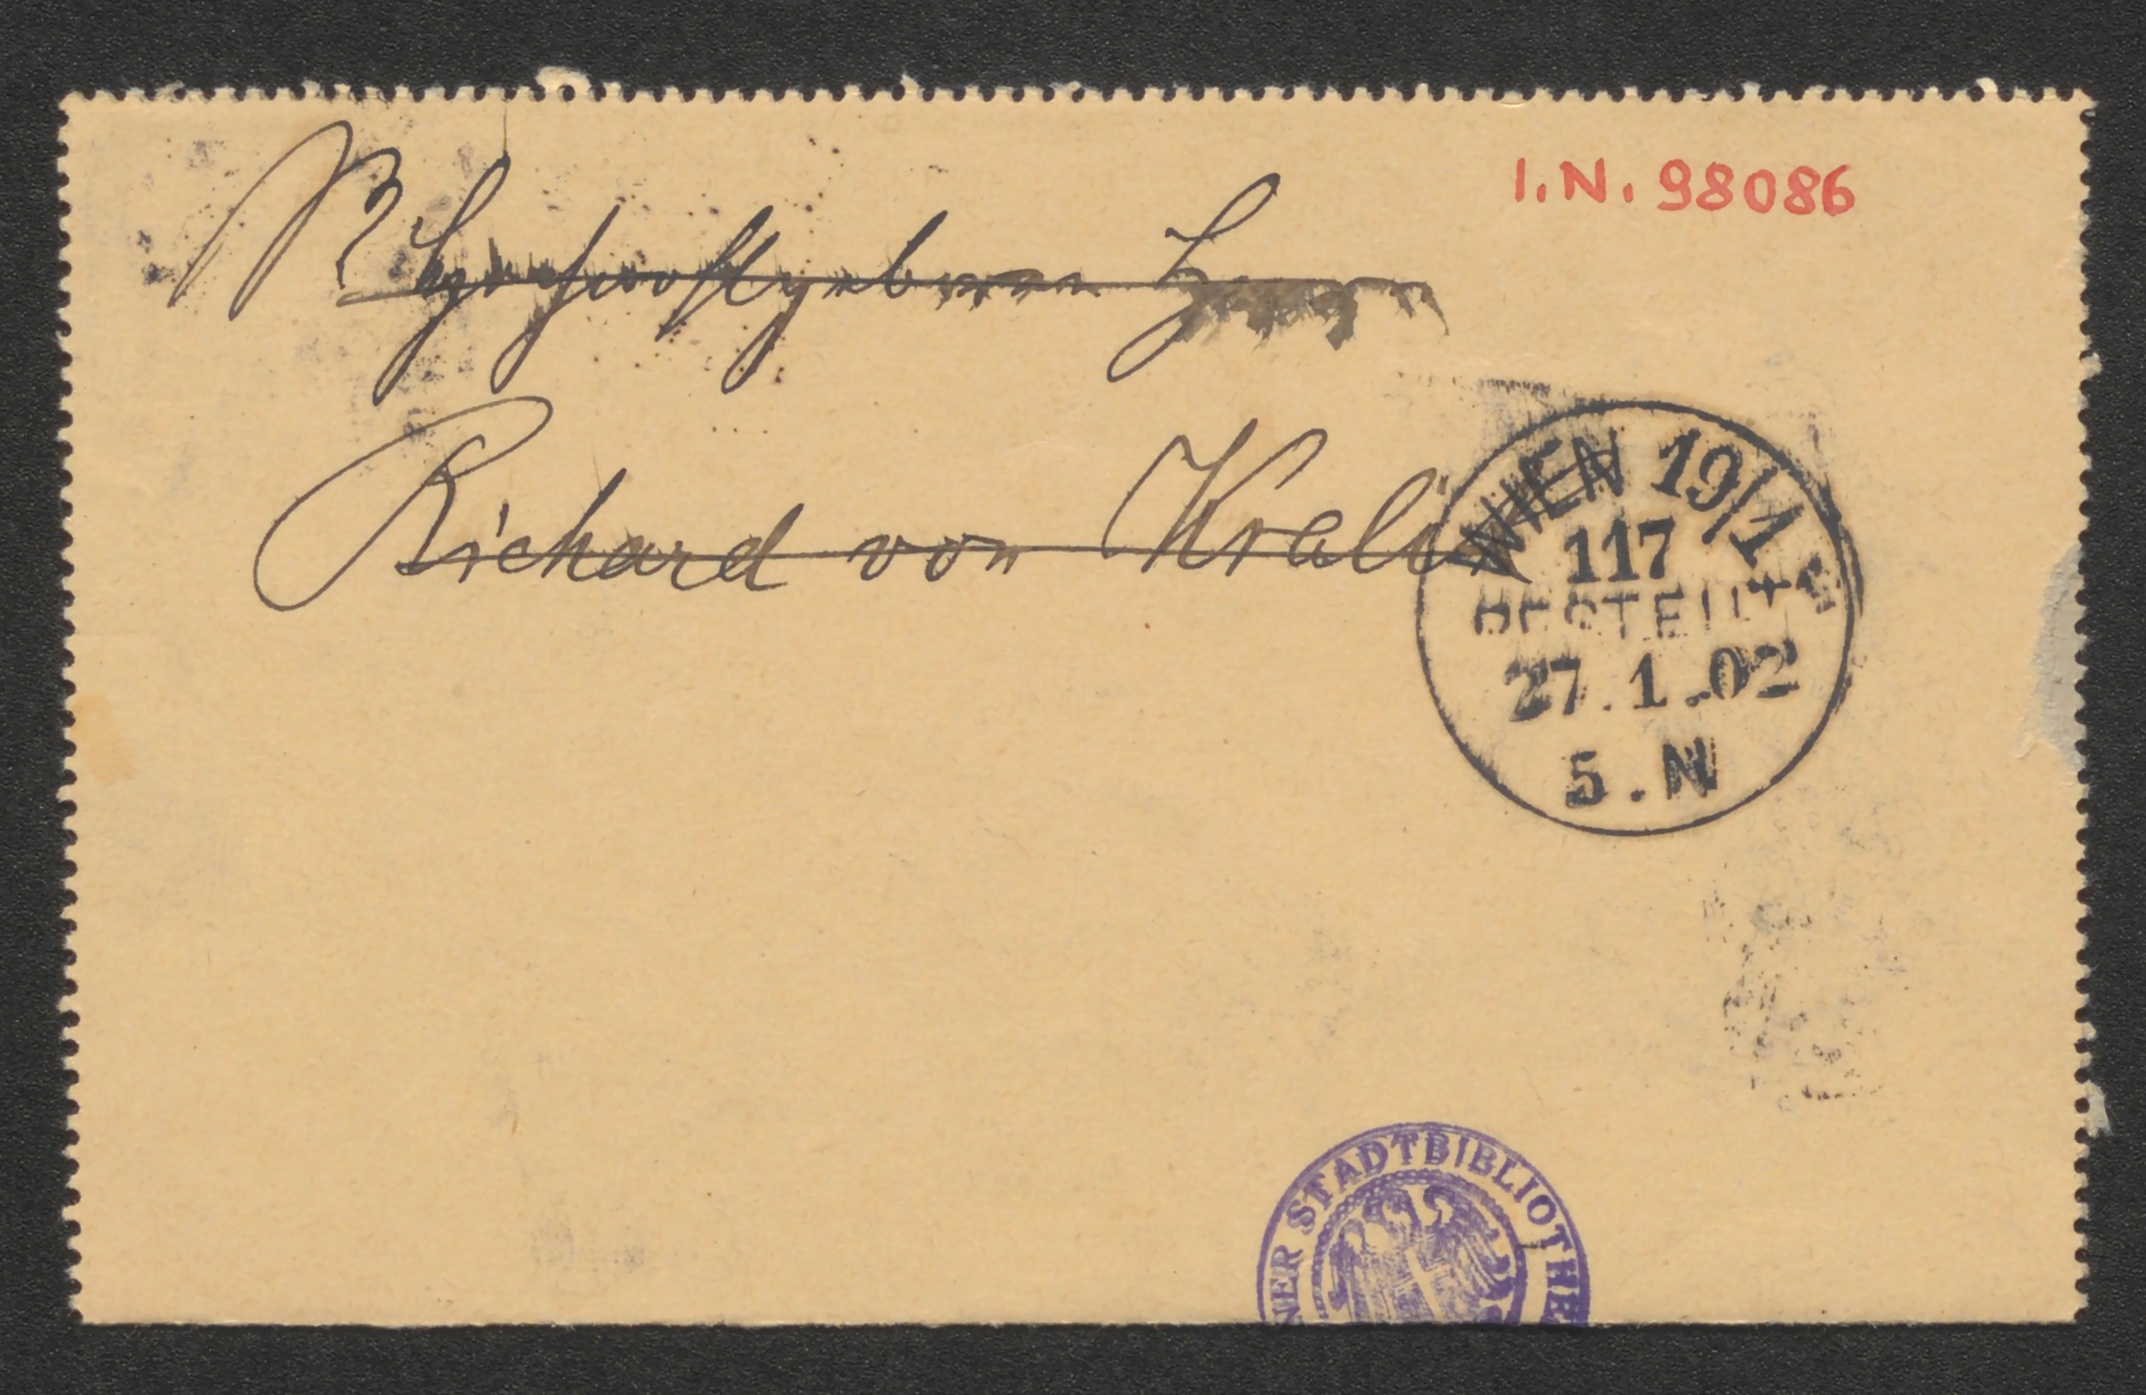 I.N. 98086
Hochwohlgeboren Herrn
Richard von Kralik
WIEN 19/1
117
BESTELLT
27.1.02
5.N
WIENER STADTBIBLIOTHEK